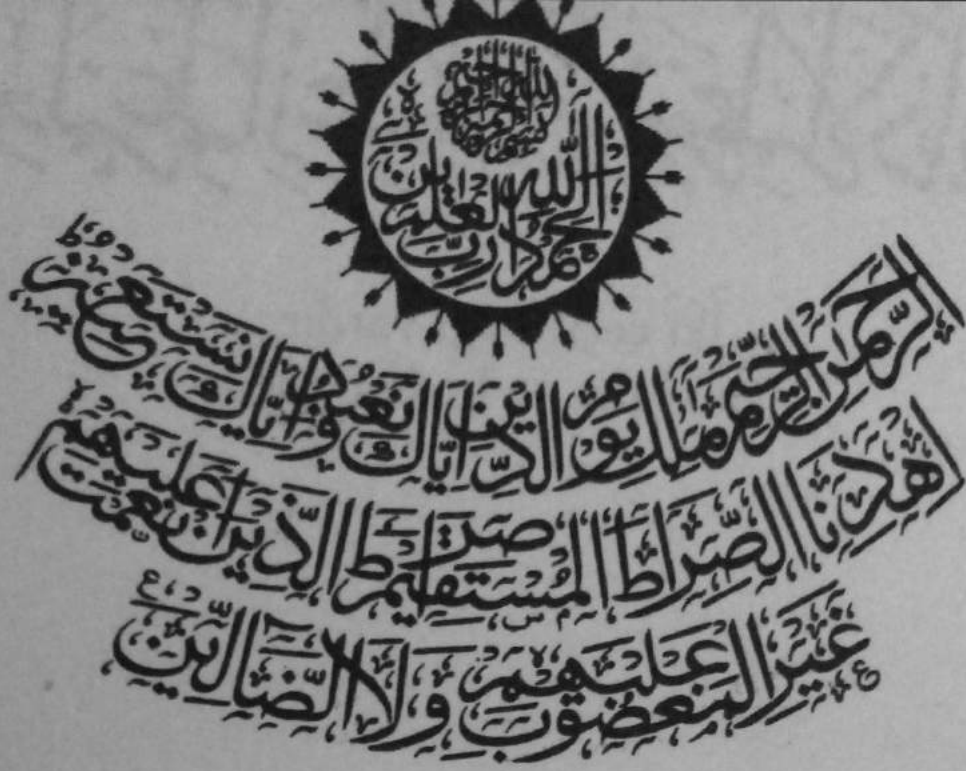 بسم الله الرحمن الرحيم
الحمد لله رب العلمين
الرحمن الرحيم ملك يوم الدين اياك نعبد واياك نستعين
اهدنا الصراط المستقيم صراط الذين انعمت عليهم
غير المغضوب عليهم ولا الضالين